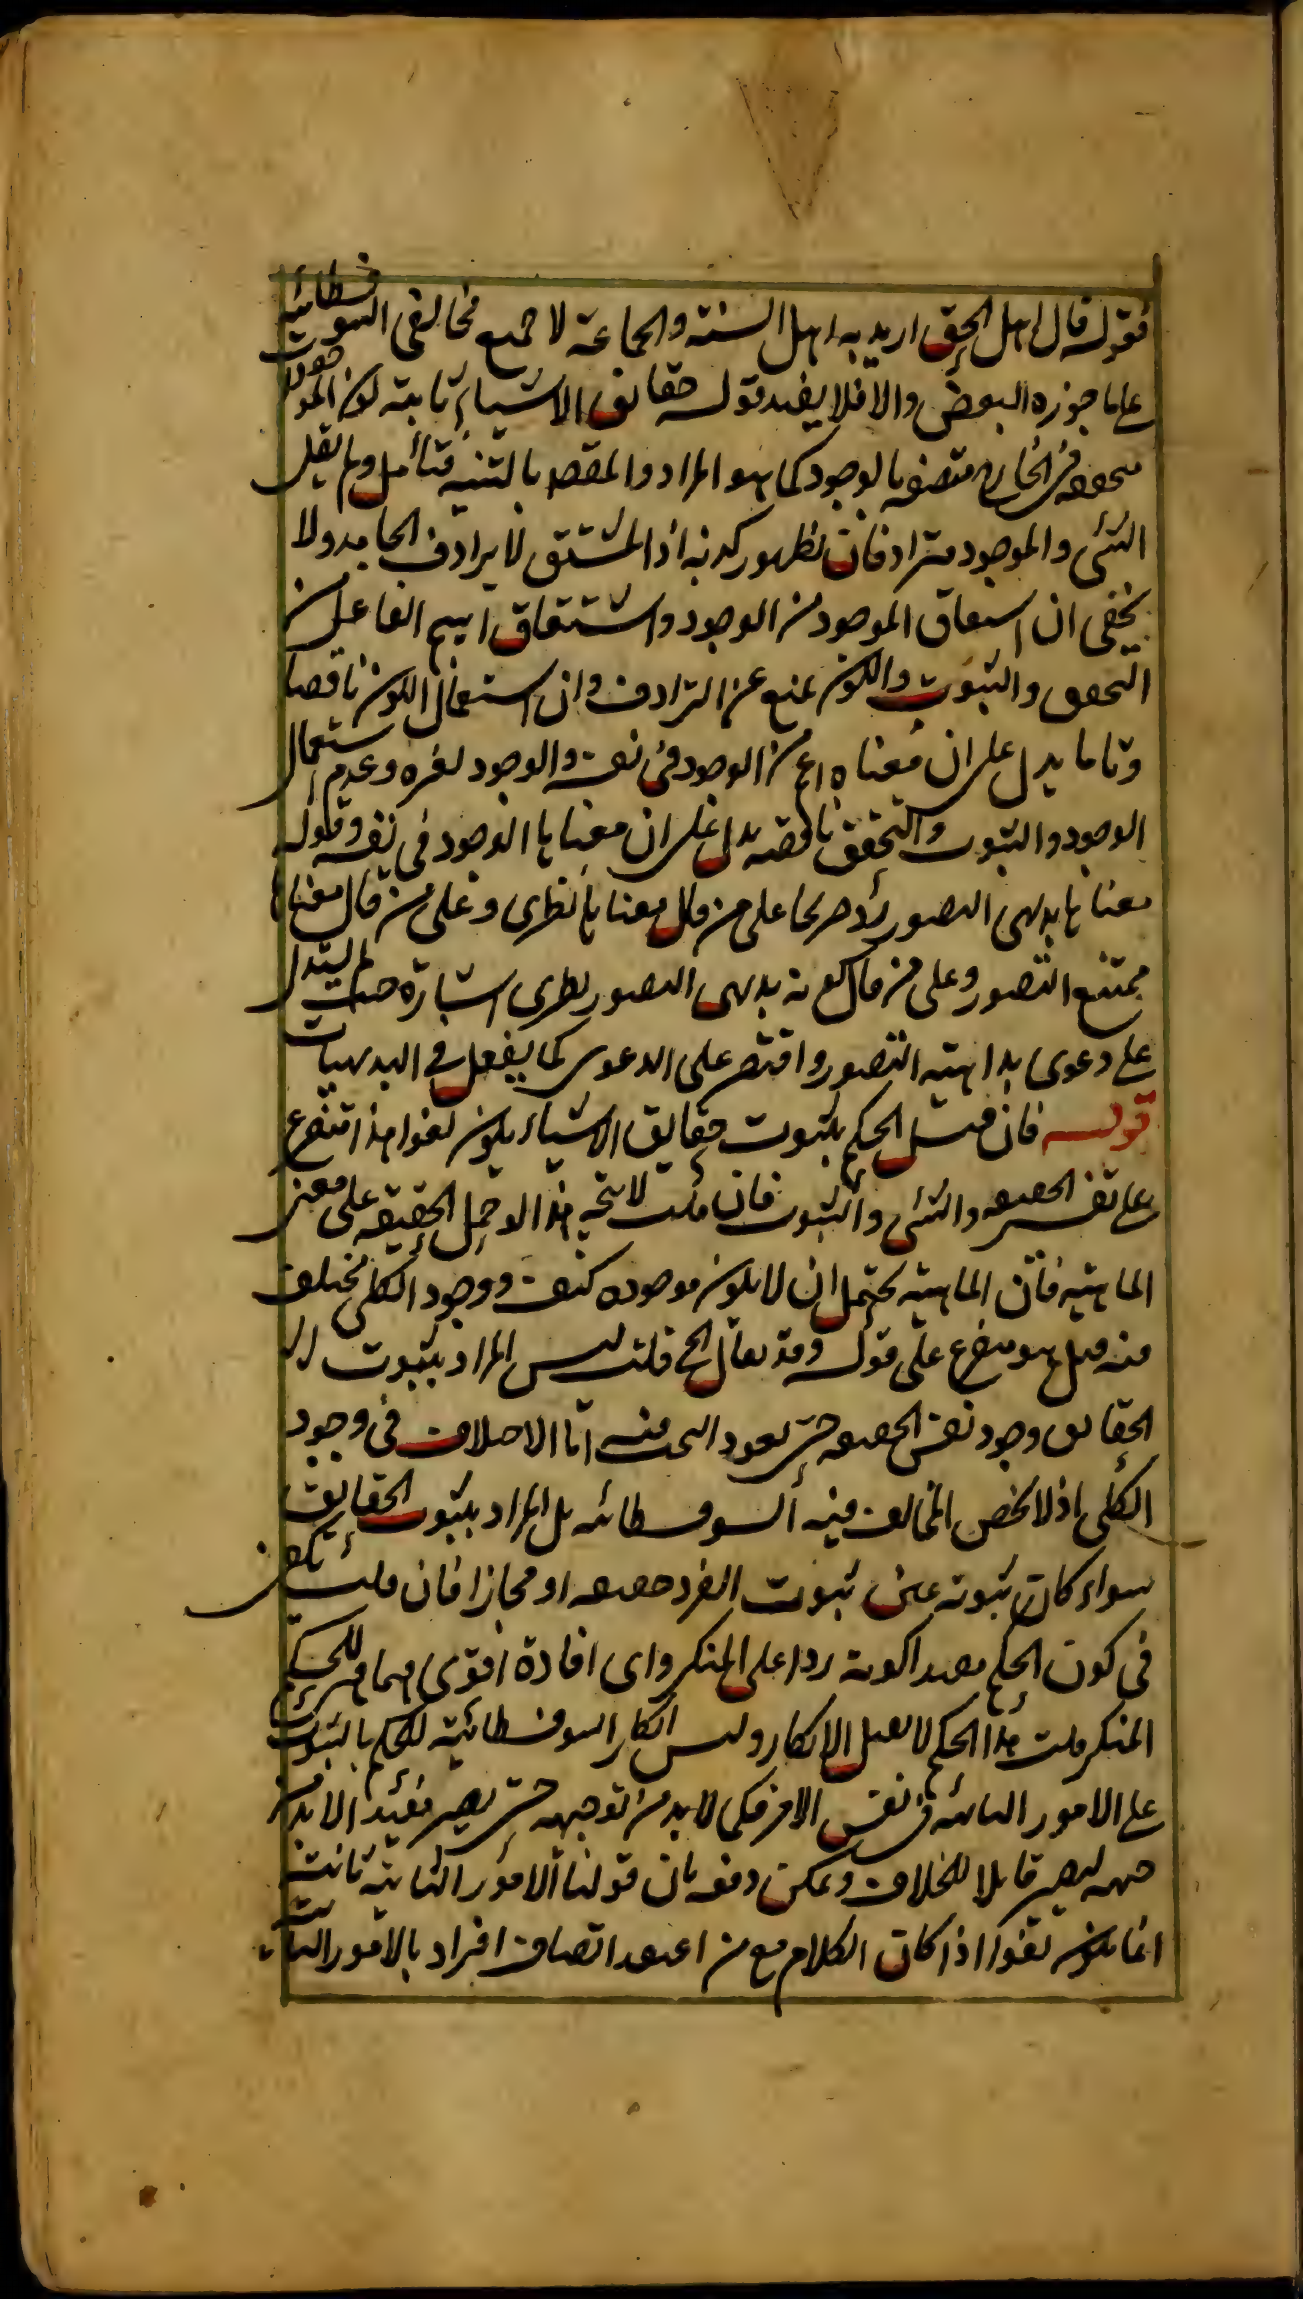 فقوله قال اهل الحق اريد به اهل السنة والجماعة لا جميع مخالفى السوفسطائية
على ما جوزه البعض والا فلا يفيد قوله حقائق الاشياء ثابتة لكون الموجودات
متحققة فى الخارج متصفة بالوجود كما هو المراد والمقصد بالتنبيه فتأمل ولم يقل
الشئ والموجود مترادفان لظهور كذبه اذ المشتق لا يرادف الجامد ولا
يخفى ان اشتقاق الموجود من الوجود واشتقاق اسم الفاعل من
التحقق والثبوت والكون يمنع عن الترادف وان استعمال الكون ناقصا
وتاما يدل على ان معناه اعم من الوجود فى نفسه والوجود لغيره وعدم استعمال
الوجود والثبوت والتحقق ناقصة يدل على ان معناها الوجود فى نفسه وقوله
معناها بديهى التصور رد صريحا على من قال معناها نظرى وعلى من قال معناها
ممتنع التصور وعلى من قال كونه بديهى التصور نظرى اشارة حيث لم يستدل
على دعوى بداهته التصور واقتصر على الدعوى كما يفعل فى البديهيات
قوله فان قيل الحكم بثبوت حقايق الاشياء يكون لغوا هذا متفرع
على تفسير الحقيقة والشئ والثبوت فان قلت لا يتجه هذا لو حمل الحقيقة على معنى
الماهية فان الماهية يحتمل ان لا يكون موجوده كيف ووجود الكلى مختلف
فيه قيل هو متفرع على قوله وقد يقال الخ قلت ليس المراد بثبوت
الحقايق وجود نفس الحقيقة حتى يعود البحث فيه الى الاختلاف فى وجود
الكلى اذ لا يخص المخالف فيه السوفسطائيه بل المراد بثبوت الحقايق
سواء كان ثبوته عين ثبوت الفرد حقيقة او مجازا فان قلت يكفى
فى كون الحكم مفيدا كونه ردا على المنكر واى افادة اقوى مما فهم للحكم
المنكر قلت هذا الحكم لا يقبل الانكار وليس انكار السوفسطائية للحكم بالثبوت
على الامور الثابتة فى نفس الامر فكما لا بد من توجيهه حتى يصير مفيدا لا بد من
جهه ليصير قابلا للخلاف ويمكن دفعه بان قولنا الامور الثابتة ثابتة
انما يكون لغوا اذا كان الكلام مع من اعتقد اتصاف افراد بالامور الثابتة